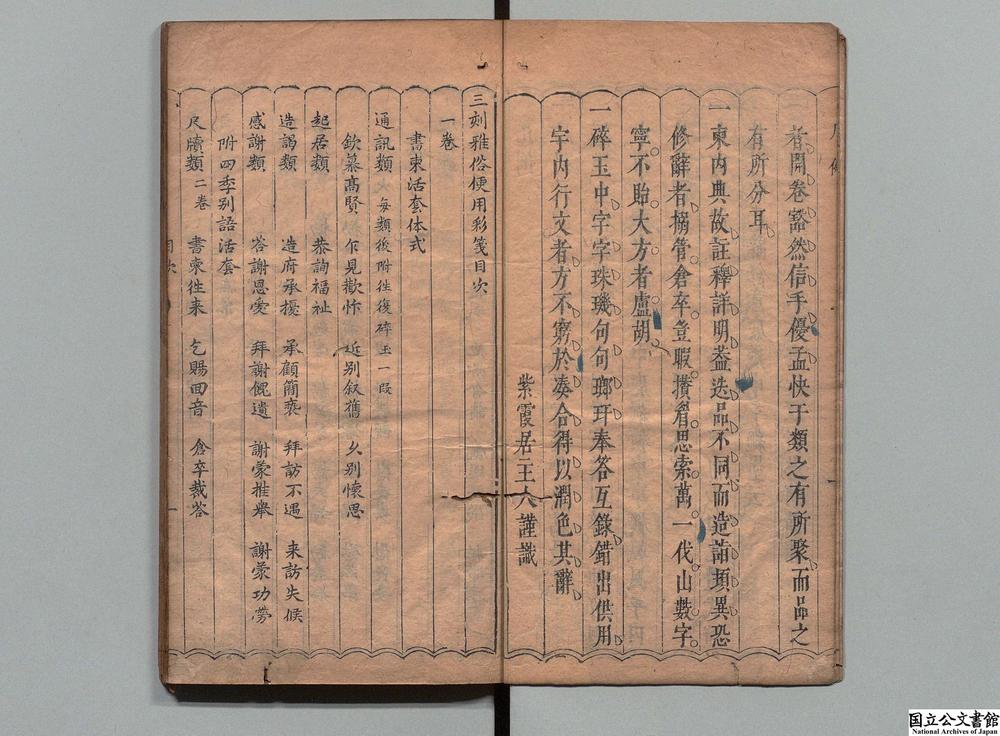 者開卷豁然信手優孟快于類之有所聚而品之
有所分耳
一柬內典故註釋詳明葢迭品不同而造詣頓異恐
修辭者搦管倉卒豈暇攢眉思索萬一代山數字
寧不貽大方者盧胡
一碎玉中字字珠璣句句瑯玕奉答互錄錯出供用
宇內行文者方不窮於湊合得以潤色其辭
紫霞居主人謹識
三刻雅俗便用彩箋目次
一卷
書柬活套体式
通訊類 每類後附徃復碎玉一段
欽慕高賢 乍見歡忻 近別叙舊 久別懷思
起居類 恭詢福祉
造謁類 造府承擾 承顧簡褻 拜訪不遇 来訪失候
感謝類 荅謝恩愛 拜謝餽遺 謝蒙推舉 謝蒙功勞
附四季别語活套
尺牘類 二卷 書柬徃来 乞賜回音 倉卒裁答
目次 一
国立公文書館
National Archives of Japan